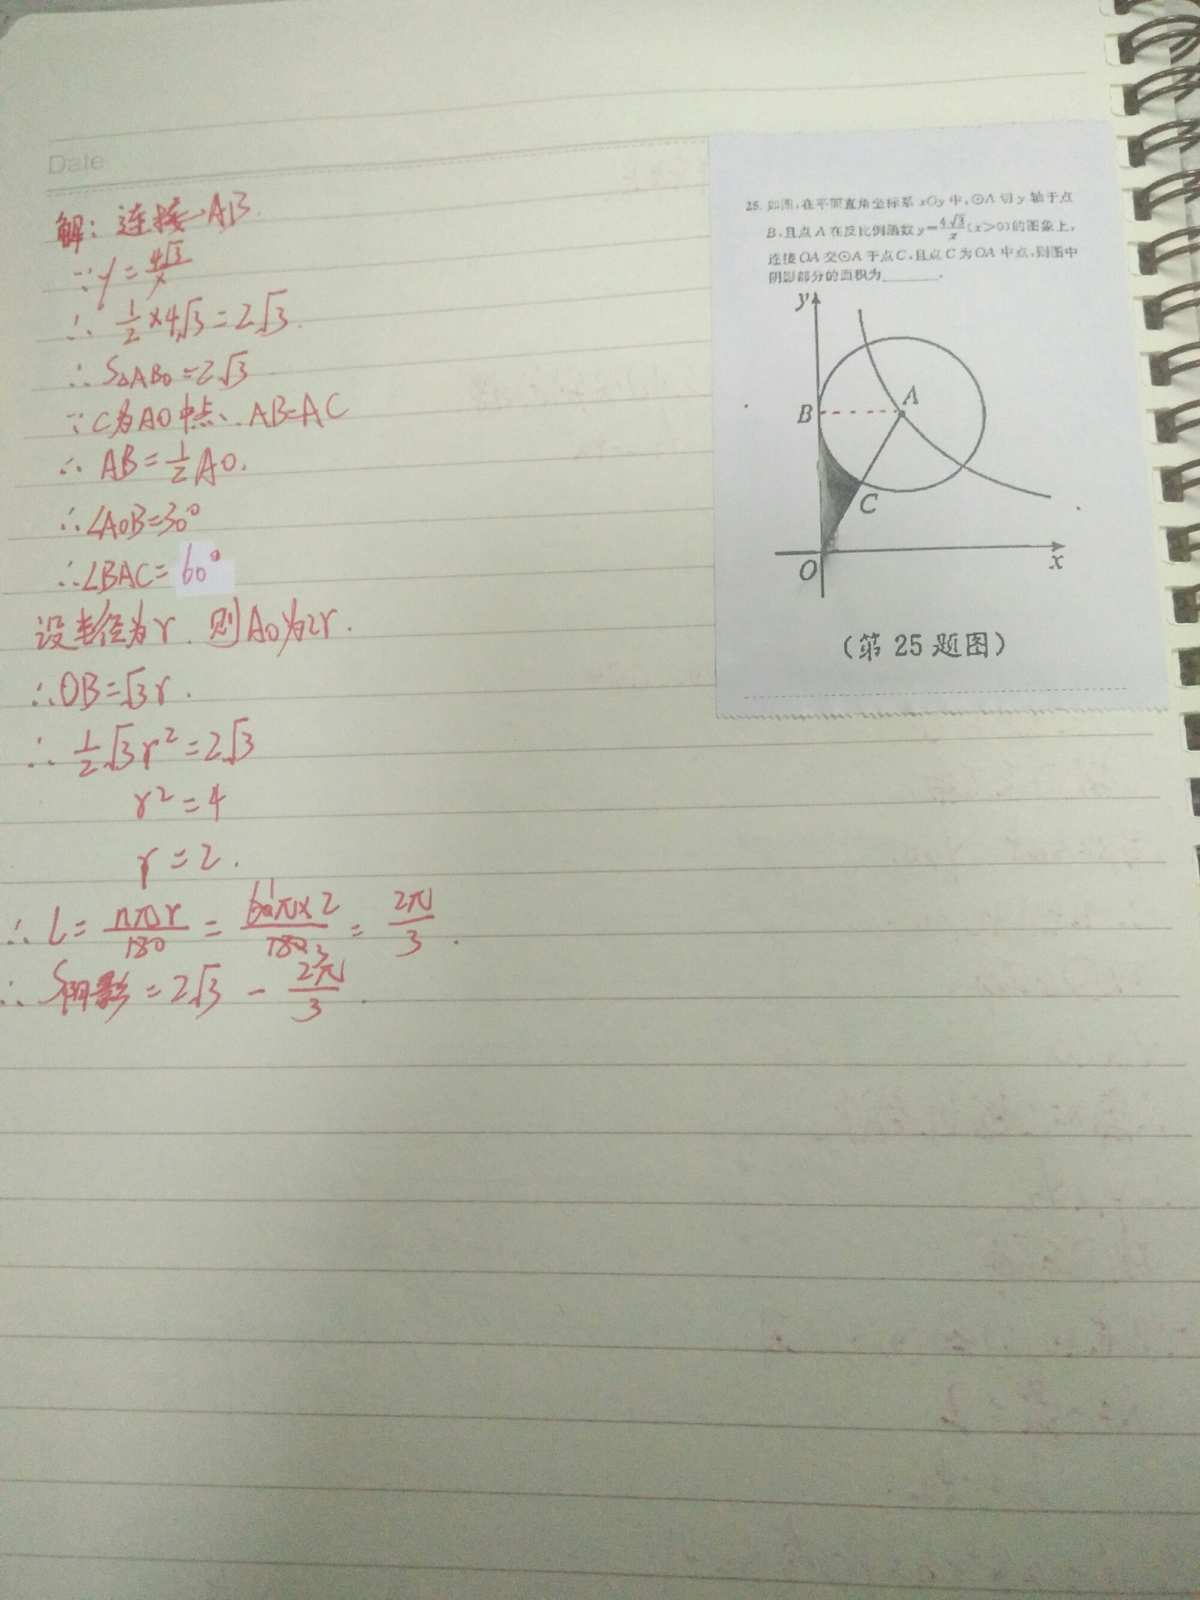 Date
解：连接AB.
∵y=4√3/x
∴ 1/2×4√3=2√3.
∴S△ABO=2√3
∵C为AO中点、AB=AC
∴ AB=1/2AO.
∴∠AOB=30°
∴∠BAC=60°
设半径为r. 则AO为2r.
∴OB=√3r.
∴ 1/2√3r²=2√3
r²=4
r=2.
∴ L=nπr/180=60π×2/180=2π/3.
∴ S阴影=2√3-2π/3.
25. 如图,在平面直角坐标系 xOy 中,⊙A 切 y 轴于点
B,且点 A 在反比例函数 y=4√3/x(x>0)的图象上,
连接 OA 交⊙A 于点 C,且点 C 为 OA 中点,则图中
阴影部分的面积为______.
y
B
A
C
O
x
(第 25 题图)